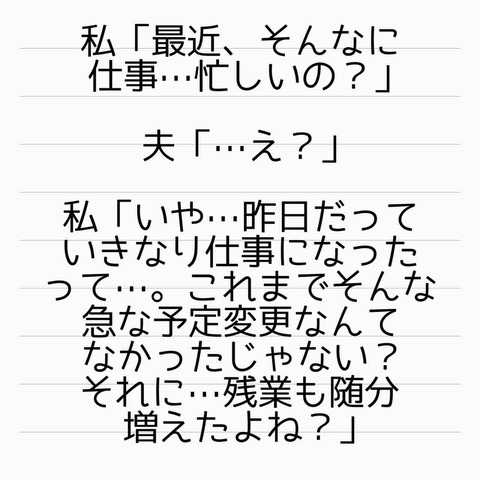 私「最近、そんなに
仕事…忙しいの？」
夫「…え？」
私「いや…昨日だって
いきなり仕事になった
って…。これまでそんな
急な予定変更なんて
なかったじゃない？
それに…残業も随分
増えたよね？」